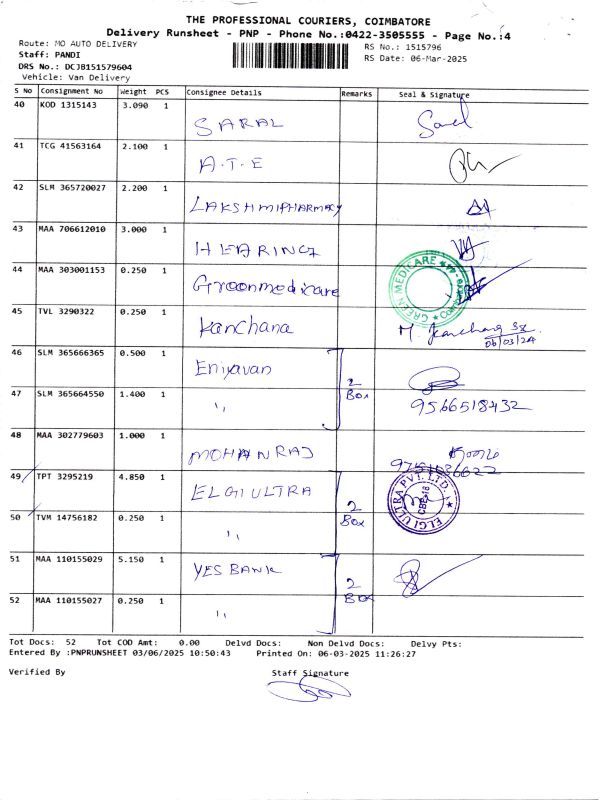 THE PROFESSIONAL COURIERS, COIMBATORE
Delivery Runsheet - PNP - Phone No.:0422-3505555 - Page No.:4
Route: MO AUTO DELIVERY
RS No.: 1515796
Staff: PANDI
RS Date: 06-Mar-2025
DRS No.: DCJB151579604
Vehicle: Van Delivery
S No Consignment No Weight PCS Consignee Details Remarks Seal & Signature
40 KOD 1315143 3.090 1 SARAL
41 TCG 41563164 2.100 1 A.T.E
42 SLM 365720027 2.200 1 LAKSHMIPHARMACY
43 MAA 706612010 3.000 1 HEARING
44 MAA 303001153 0.250 1 Greenmedicare GREEN MEDICARE
45 TVL 3290322 0.250 1 Kanchana M. Kanchana
06/03/24
46 SLM 365666365 0.500 1 Eniyavan 2 Box
47 SLM 365664550 1.400 1 " 9566518432
48 MAA 302779603 1.000 1 MOHANRAJ
49 TPT 3295219 4.850 1 ELGI ULTRA 2 Box ELGI ULTRA PVT. LTD. CBE-18
50 TVM 14756182 0.250 1 "
51 MAA 110155029 5.150 1 YES BANK 2 Box
52 MAA 110155027 0.250 1 "
Tot Docs: 52 Tot COD Amt: 0.00 Delvd Docs: Non Delvd Docs: Delvy Pts:
Entered By :PNPRUNSHEET 03/06/2025 10:50:43 Printed On: 06-03-2025 11:26:27
Verified By Staff Signature